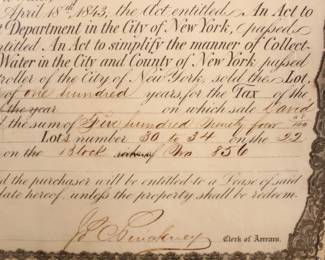 April 18th 1843, the Act entitled, An Act to
Department in the City of New York, passed
entitled An Act to simplify the manner of Collect-
Water in the City and County of New York, passed
troller of the City of New York, sold the Lot
of one hundred years, for the Tax of the
the year on which sale David
the sum of Five hundred ninety four
Lots number 30 to 34 on the 22
on the Block No 856
d the purchaser will be entitled to a Lease of said
date hereof, unless the property shall be redeem-
Clerk of Arrears.